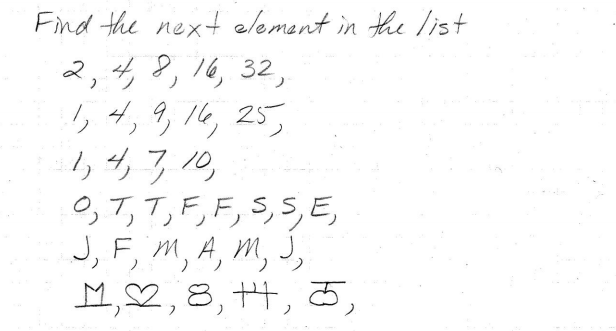 Find the next element in the list
2, 4, 8, 16, 32,
1, 4, 9, 16, 25,
1, 4, 7, 10,
O, T, T, F, F, S, S, E,
J, F, M, A, M, J,
M, ♡, 8,